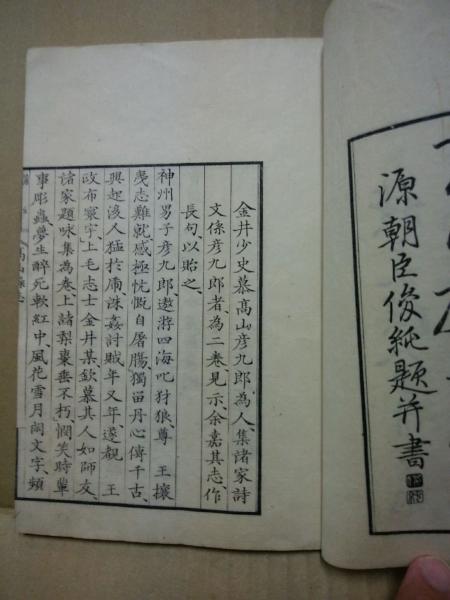 源朝臣俊純題并書
金井少史慕高山彦九郎為人、集諸家詩
文係彦九郎者為二卷見示、余嘉其志、作
長句以貽之、
神州男子彦九郎遨游四海叱犲狼、尊 王攘
夷志難就感極忼慨自屠腸、獨留丹心傳千古、
興起後人猛於虎誅姦討賊年又年、遂覩 王
政布寰宇、上毛志士金井某欽慕其人如師友、
諸家題咏集為卷上諸梨棗垂不朽、憫笑時輩
事彫蟲夢生醉死軟紅中、風花雪月闘文字、頻